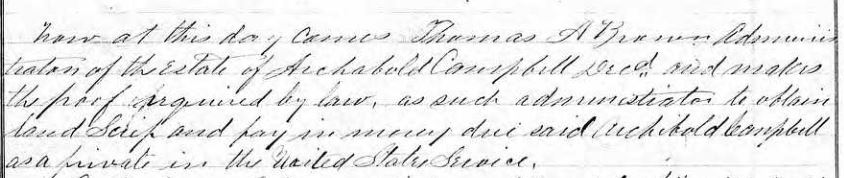 Now at this day comes Thomas A Brown Adminis
trator of the Estate of Archabold Campbell Decd. and makes
the proof required by law, as such administrator to obtain
land Scrip and pay in money due said Archibold Campbell
as a private in the United States Service.